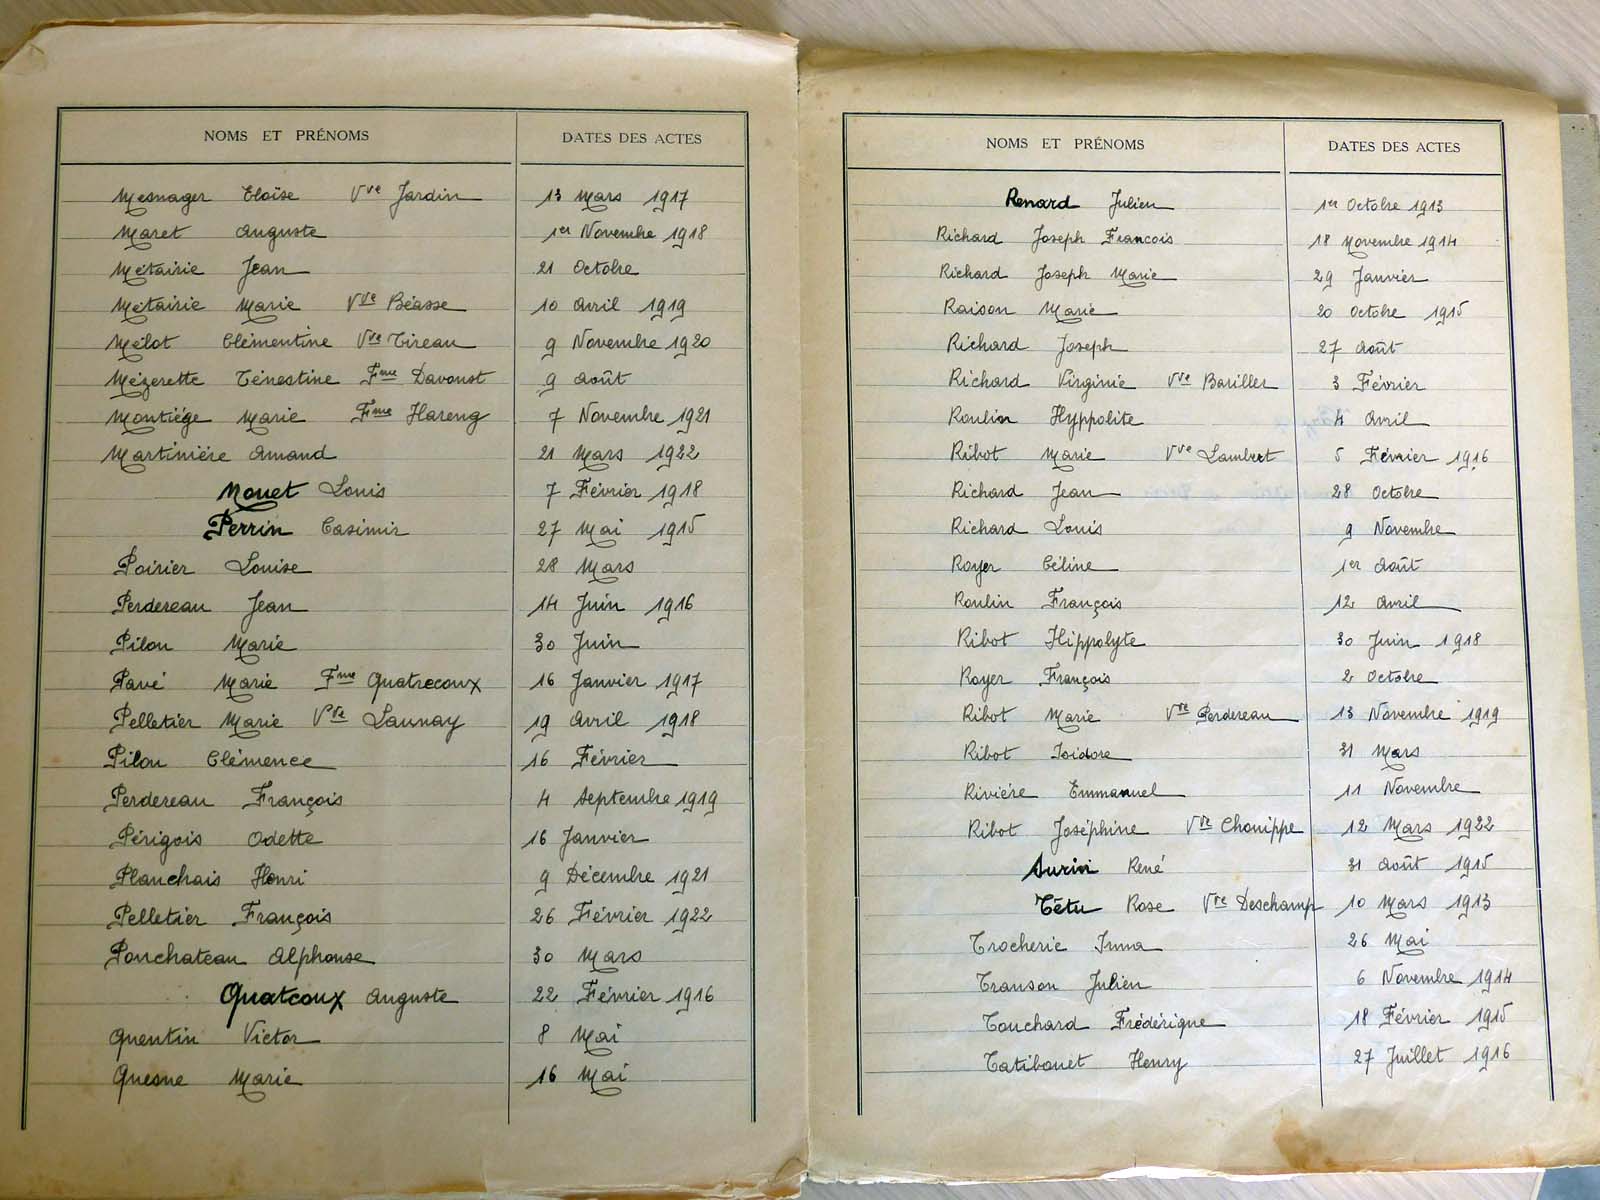 NOMS ET PRÉNOMS DATES DES ACTES
Mesnager Eloïse Vve Jardin 13 Mars 1917
Maret Auguste 1er Novembre 1918
Métairie Jean 21 Octobre
Métairie Marie Vve Béasse 10 Avril 1919
Mélot Clémentine Vve Tireau 9 Novembre 1920
Mézerette Ténestine Fme Davoust 9 Août
Montiége Marie Fme Hareng 7 Novembre 1921
Martinière Amand 21 Mars 1922
Mouet Louis 7 Février 1918
Perrin Casimir 27 Mai 1915
Poirier Louise 28 Mars
Perdereau Jean 14 Juin 1916
Pilon Marie 30 Juin
Pavé Marie Fme Quatrecoux 16 Janvier 1917
Pelletier Marie Vve Launay 19 Avril 1918
Pilon Clémence 16 Février
Perdereau François 4 Septembre 1919
Périgois Odette 16 Janvier
Planchais Henri 9 Décembre 1921
Pelletier François 26 Février 1922
Ponchateau Alphonse 30 Mars
Quatcoux Auguste 22 Février 1916
Quentin Victor 8 Mai
Quesne Marie 16 Mai
NOMS ET PRÉNOMS DATES DES ACTES
Renard Julien 1er Octobre 1913
Richard Joseph Francois 18 Novembre 1914
Richard Joseph Marie 29 Janvier
Raison Marie 20 Octobre 1915
Richard Joseph 27 Août
Richard Virginie Vve Bariller 3 Février
Roulin Hyppolite 4 Avril
Ribot Marie Vve Lambert 5 Février 1916
Richard Jean 28 Octobre
Richard Louis 9 Novembre
Royer Céline 1er Août
Roulin François 12 Avril
Ribot Hippolyte 30 Juin 1918
Royer François 2 Octobre
Ribot Marie Vve Perdereau 13 Novembre 1919
Ribot Isidore 31 Mars
Rivière Emmanuel 11 Novembre
Ribot Joséphine Vve Chouippe 12 Mars 1922
Surin René 31 Août 1915
Têtu Rose Vve Deschamp 10 Mars 1913
Trocherie Inna 26 Mai
Transon Julien 6 Novembre 1914
Touchard Frédérique 18 Février 1915
Tatibouet Henry 27 Juillet 1916